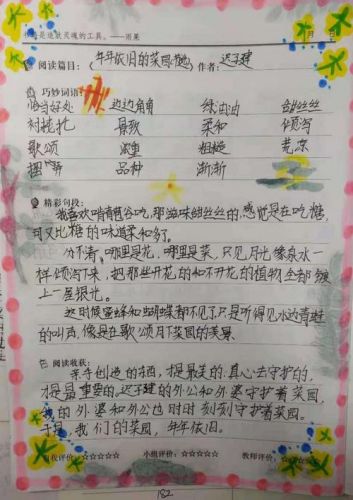 书籍是造就灵魂的工具。——雨果
月 日
阅读篇目：《年年依旧的菜园》 作者：迟子建
巧妙词语：
恰当好处 边边角角 绿油油 甜丝丝
衬托 景致 柔和 倾泻
歌颂 浓重 粗糙 荒凉
品种 渐渐
精彩句段：
我喜欢啃青苞谷吃，那滋味甜丝丝的，感觉是在吃糖，
可又比糖的味道柔和多了。
分不清，哪里是花，哪里是菜，只见月光像泉水一
样倾泻下来，把那些开花的和不开花的植物全都镀
上一层银光。
这时候蜜蜂和蝴蝶都不见了，只是听得见水边青蛙
的叫声，像是在歌颂月下菜园的美景。
阅读收获：
亲手创造的东西，才是最美的，真心去守护的，
才是最重要的。迟子建的外公和外婆守护着菜园，
我的外婆和外公也时时刻刻守护着菜园。
我们的菜园，年年依旧。
自我评价：☆☆☆☆☆ 小组评价：☆☆☆☆☆ 教师评价：☆☆☆☆☆
182